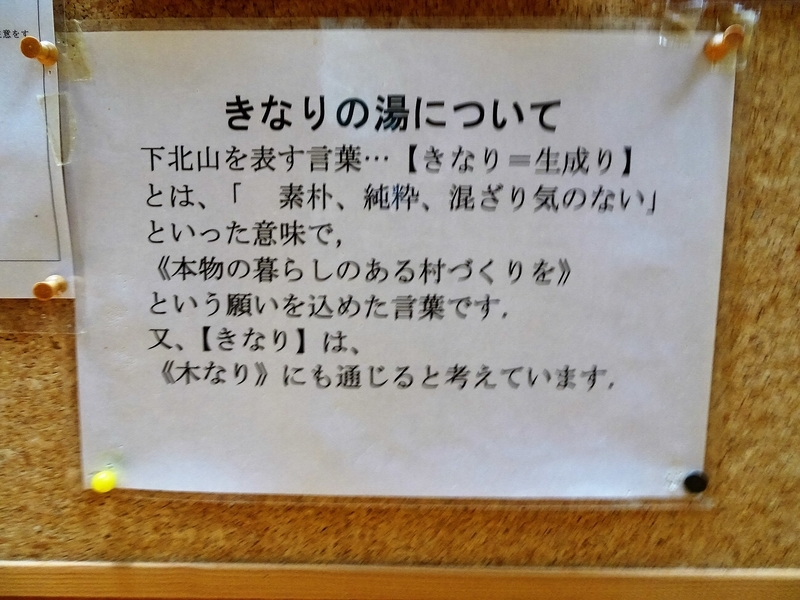 意をす
きなりの湯について
下北山を表す言葉…【きなり＝生成り】
とは、「　素朴、純粋、混ざり気のない」
といった意味で，
《本物の暮らしのある村づくりを》
という願いを込めた言葉です．
又、【きなり】は、
《木なり》にも通じると考えています．